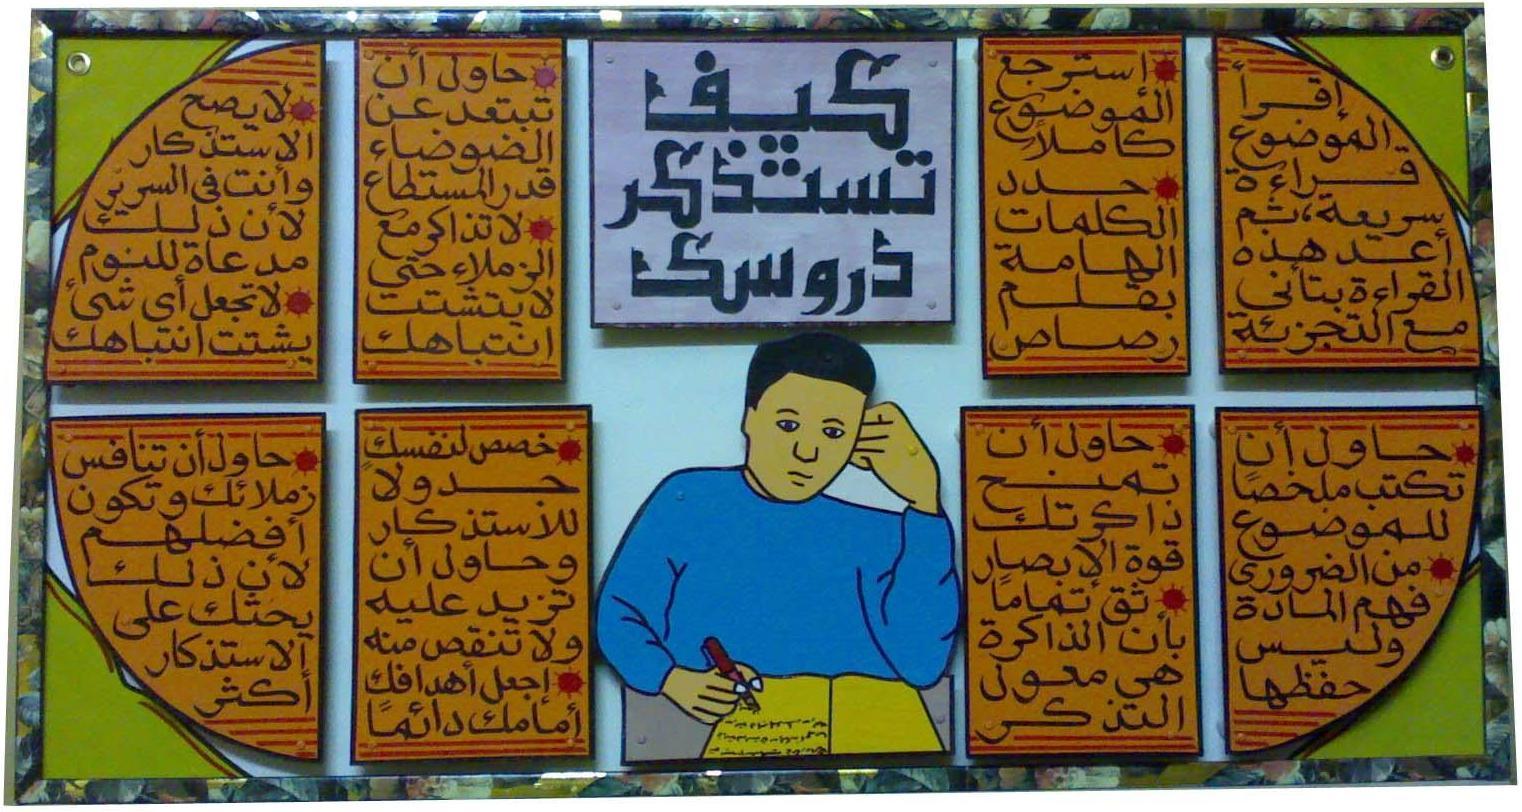 كيف
تستذكر
دروسك
إقرأ
الموضوع
قراءة
سريعة، ثم
أعد هذه
القراءة بتأنى
مع التجزئة
استرجع
الموضوع
كاملاً
حدد
الكلمات
الهامة
بقلم
رصاص
حاول أن
تبتعد عن
الضوضاء
قدر المستطاع
لا تذاكر مع
الزملاء حتى
لا يتشتت
انتباهك
لا يصح
الاستذكار
وأنت فى السرير
لأن ذلك
مدعاة للنوم
لا تجعل أى شئ
يشتت انتباهك
حاول أن
تكتب ملخصًا
للموضوع
من الضرورى
فهم المادة
وليس
حفظها
حاول أن
تمنح
ذاكرتك
قوة الإبصار
ثق تمامًا
بأن الذاكرة
هي معول
التذكر
خصص لنفسك
جدولاً
للأستذكار
وحاول أن
تزيد عليه
ولا تنقص منه
إجعل أهدافك
أمامك دائمًا
حاول أن تنافس
زملائك وتكون
أفضلهم
لأن ذلك
يحثك على
الاستذكار
أكثر